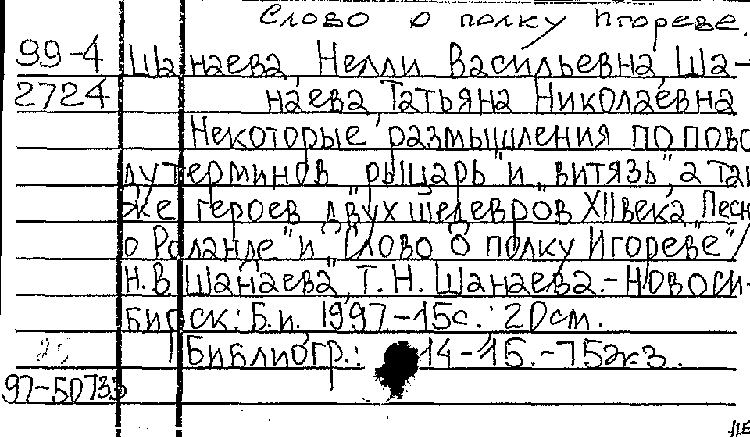 Слово о полку Игореве.
99-4 Шанаева, Нелли Васильевна, Ша-
2724 наева Татьяна Николаевна
Некоторые размышления по пово
ду терминов „рыцарь" и „витязь", а так
же героев двух шедевров XII века „Песн
о Роланде" и "Слово о полку Игореве"/
Н.В. Шанаева, Т.Н. Шанаева.-Новоси-
бирск: Б.и. 1997-15с.: 20см.
Библиогр.: 14-15.-75экз.
97-50733